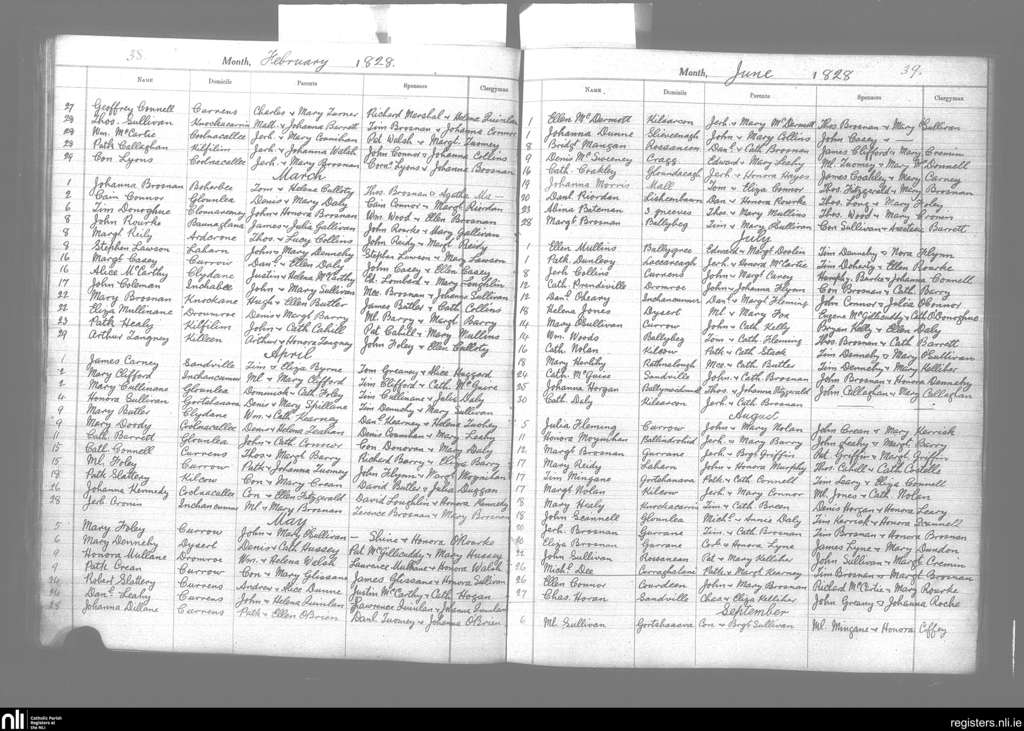 38.
Month, February 1828.
Name Domicile Parents Sponsors Clergyman
27 Geoffrey Connell Currens Charles + Mary Turner Richard Marshal + Helena Quinlan
28 Thos. Sullivan Knockacarrin Matt. + Johanna Barrett Tim Brosnan + Johanna Connor
28 Wm. McCartie Coolnacalles Jerh. + Mary Counihan Pat Walsh + Margt. Twomey
28 Path. Callaghan Kilfilim Jerh. + Johanna Walsh John Connor + Johanna Collins
29 Con Lyons Coolnacalles Jerh. + Mary Brosnan Cors. Lyons + Johanna Brosnan
March
1 Johanna Brosnan Boherbee Tom + Helena Calloty Thos. Brosnan + Agatha Ma —
2 Cain Connor Glounlea Denis + Mary Daly Cain Connor + Margt. Riordan
6 Tim Donoghue Clonnancemy John + Honora Brosnan Wm. Wood + Ellen Brosnan
8 John Rourke Baunaglana James + Julia Gullivan John Rourke + Mary Gullivan
8 Margt. Reily Ardcrone Thos. + Lucy Collins John Reidy + Margt. Reidy
8 Stephen Lawson Laharn John + Mary Dennehy Stephen Lawson + Mary Lawson
16 Margt. Casey Currow Danl. + Ellen Daly John Casey + Ellen Casey
16 Alice McCarthy Clydane Justin + Helena McCarthy Ed. Lombard + Mary Loughlin
17 John Coleman Inchabee John + Mary Sullivan Mce. Brosnan + Johanna Sullivan
22 Mary Brosnan Knockane Hugh + Ellen Butler James Butler + Cath. Collins
22 Eliza Mullinane Droumroe Denis + Margt. Barry Ml. Barry + Margt. Barry
23 Path. Healy Kilfilim John + Cath. Cahill Pat Cahill + Mary Mullins
29 Arthur Langney Killeen Arthur + Honora Langney John Foley + Ellen Calloty
April
1 James Carney Sandville Tim + Eliza Byrne Tom Greaney + Alice Haggard
2 Mary Clifford Inchancummer Ml. + Mary Clifford Tim Clifford + Cath. McGuire
2 Mary Cullinane Glounlea Dominick + Cath. Foley Tim Cullinane + Julia Daly
4 Honora Sullivan Gortshanana Denis + Mary Spillane Tim Dennehy + Mary Sullivan
9 Mary Butler Clydane Wm. + Cath. Kearney Danl. Kearney + Helena Tuohey
9 Mary Doody Coolnacalles Denis + Helena Leehan Denis Counihan + Mary Leahy
11 Cath. Barrett Glounlea John + Cath. Connor Con Donovan + Mary Daly
15 Cath. Connell Currens Thos. + Margt. Barry Richard Barry + Eliza Barry
15 Ml. Foley Currow Path. + Johanna Twomey John Flynn + Margt. Moynihan
18 Path. Slattery Kilcow Con + Mary Crean David Butler + Julia Duggan
26 Johanna Kennedy Coolnacalles Con + Ellen Fitzgerald David Loughlin + Honora Kennedy
28 Jerh. Cronin Inchancummer Ml. + Mary Brosnan Terence Brosnan + Mary Brosnan
May
5 Mary Foley Currow John + Mary O'Sullivan — Shine + Honora O'Rourke
6 Mary Dennehy Dysert Denis + Cath. Hussey Pat McGillicuddy + Mary Hussey
9 Honora Mullane Dromroe Wm. + Helena Walsh Laurence Mullane + Honora Walsh
9 Path. Crean Currow Con + Mary Glissane James Glissane + Honora Sullivan
24 Robert Slattery Currens Andrew + Alice Dunne Justin McCarthy + Cath. Hogan
26 Danl. Leahy Currens John + Helena Quinlan Lawrence Quinlan + Johanna Quinlan
28 Johanna Dillane Currens Path. + Ellen O'Brien Danl. Twomey + Johanna O'Brien
Month, June 1828 39.
Name Domicile Parents Sponsors Clergyman
1 Ellen McDermott Kilsarcon Jerh. + Mary McDermott Thos. Brosnan + Mary Sullivan
1 Johanna Dunne Slievenagh John + Mary Collins John Casey + —
8 Bridgt. Mangan Rossaneen Danl. + Cath. Brosnan James Clifford + Mary Cremin
9 Denis McSweeney Cragg Edward + Mary Leahy Ml. Twomey + Mary McDonnell
16 Cath. Crekley Gloundaeagh Jerh. + Honora Hayes James Coakley + Mary Carney
19 Johanna Morris Mall Tom + Eliza Connor Thos. Fitzgerald + Mary Brosnan
20 Danl. Riordan Lisheenbawn Dan + Honora Rourke Thos. Long + Mary Foley
23 Alina Bateman 3 gneeves Thos. + Mary Mullins Thos. Wood + Mary Cronin
28 Margt. Brosnan Ballybeg Tim + Mary Sullivan Con Sullivan + Barrett
July
1 Ellen Mullins Ballygree Edward + Margt. Doolin Tim Dennehy + Nora Flynn
1 Path. Dunlovy Loccareagh Jerh. + Honora McCartie Tim Doherty + Ellen Rourke
8 Jerh. Collins Currens John + Margt. Carey Humphy. Burke + Johanna Connell
12 Cath. Prendiville Dromroe John + Johanna Flynn Con Brosnan + Cath. Barry
12 Danl. Cheavy Inchancummer Danl. + Margt. Fleming John Connor + Julia O'Connor
18 Helena Jones Dysert Ml. + Mary Fox Eugene McGillicuddy + Cath. O'Donoghue
14 Mary O'Sullivan Currow John + Cath. Kelly Bryan Kelly + Ellen Daly
14 Wm. Woods Ballybeg Tom + Cath. Fleming Thos. Brosnan + Cath. Barrett
16 Cath. Nolan Kilcow Path. + Cath. Slack Tim Dennehy + Mary O'Sullivan
18 Mary Horlihy Rathnalough Mce. + Cath. Butler Tim Dennehy + Mary Kelliher
24 Cath. McGuire Sandville John + Cath. Brosnan John Brosnan + Honora Dennehy
25 Johanna Horgan Ballymacdonnell Thos. + Johanna Fitzgerald John Callaghan + Mary Callaghan
30 Cath. Daly Kilsarcon Jerh. + Cath. Brosnan
August
5 Julia Fleming Currow John + Mary Nolan John Crean + Mary Kerrisk
11 Honora Moynihan Ballandrohid Jerh. + Mary Barry John Leahy + Margt. Barry
12 Margt. Brosnan Gurrane Jerh. + Brgt. Griffin Pat Griffin + Margt. Griffin
17 Mary Reidy Laharn John + Honora Murphy Thos. Cahill + Cath. Costello
17 Tim Mingane Gortshanava Path. + Cath. Connell Tim Leary + Eliza Connell
17 Margt. Nolan Kilcow Jerh. + Mary Connor Ml. Jones + Cath. Nolan
18 Mary Healy Knockacarrin Tim + Cath. Breen Denis Horgan + Honora Leary
18 John Scannell Glounlea Michl. + Annie Daly Tim Kerrisk + Honora Scannell
20 Jerh. Brosnan Gurrane Tim + Cath. Brosnan Tim Brosnan + Honora Brosnan
20 Eliza Brosnan Gurrane Corl. + Honora Lyne James Lyne + Mary Dundon
22 John Sullivan Rossaneen Pat + Mary Kelliher John Sullivan + Margt. Cremin
26 Michl. Dee Curraghalane Path. + Margt. Kearney Tim Brosnan + Margt. Brosnan
26 Ellen Connor Courdeen John + Mary Brosnan Richard McCartie + Mary Rourke
27 Chas. Horan Sandville Chas. + Eliza Kelliher John Greany + Johanna Roche
September
6 Ml. Sullivan Gortshanane Con. + Brgt. Sullivan Ml. Mingane + Honora Coffey
nli
Catholic Parish
Registers at
the NLI
registers.nli.ie